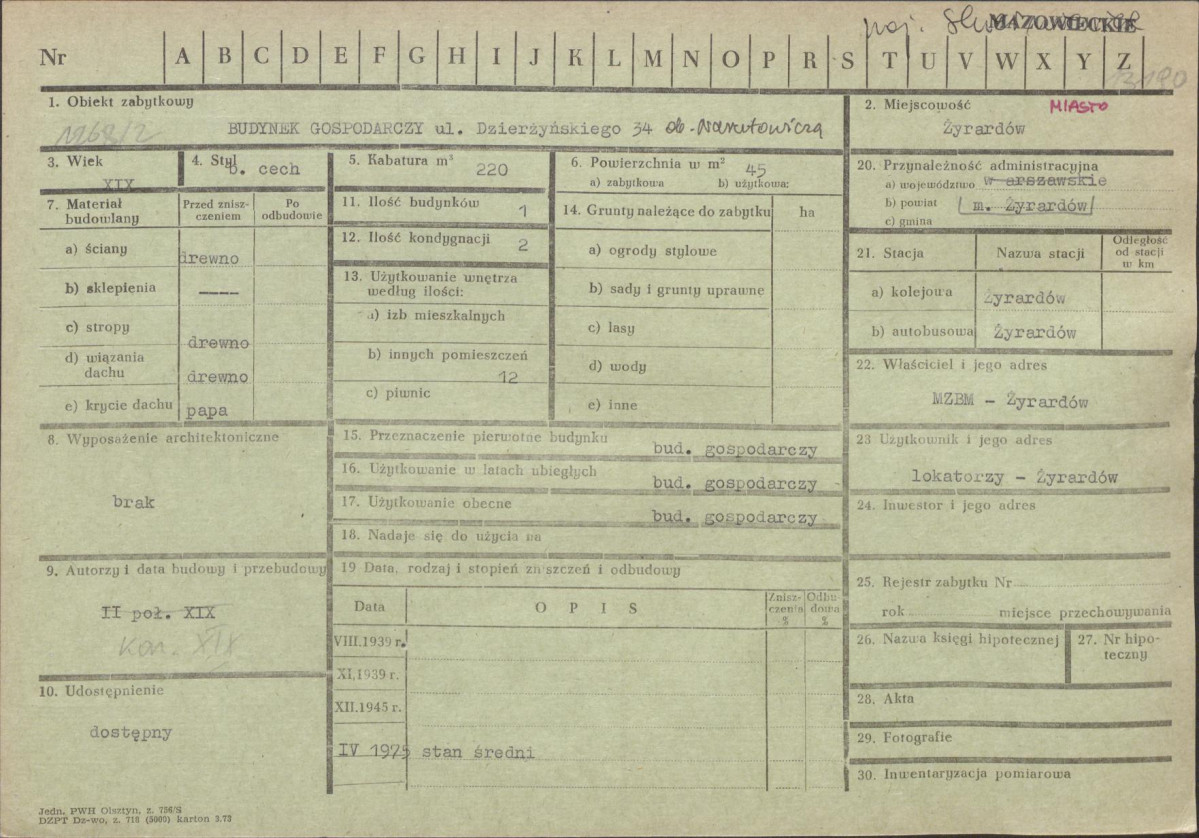 MAZOWIECKIE
Nr A B C D E F G H I J K L M N O P R S T U V W X Y Z
1. Obiekt zabytkowy
BUDYNEK GOSPODARCZY ul. Dzierżyńskiego 34 ob. Narutowicza
2. Miejscowość MIASTO
Żyrardów
3. Wiek
XIX
4. Styl
b. cech
5. Kabatura m³
220
6. Powierzchnia w m²
45
a) zabytkowa b) użytkowa:
7. Materiał budowlany
Przed zniszczeniem
Po odbudowie
a) ściany drewno
b) sklepienia ----
c) stropy drewno
d) wiązania dachu drewno
e) krycie dachu papa
11. Ilość budynków 1
12. Ilość kondygnacji 2
13. Użytkowanie wnętrza
według ilości:
a) izb mieszkalnych
b) innych pomieszczeń
12
c) piwnic
14. Grunty należące do zabytku ha
a) ogrody stylowe
b) sady i grunty uprawne
c) lasy
d) wody
e) inne
20. Przynależność administracyjna
a) województwo warszawskie
b) powiat m. Żyrardów
c) gmina
21. Stacja
Nazwa stacji
Odległość
od stacji
w km
a) kolejowa Żyrardów
b) autobusowa Żyrardów
22. Właściciel i jego adres
MZBM - Żyrardów
8. Wyposażenie architektoniczne
brak
15. Przeznaczenie pierwotne budynku
bud. gospodarczy
16. Użytkowanie w latach ubiegłych
bud. gospodarczy
17. Użytkowanie obecne
bud. gospodarczy
18. Nadaje się do użycia na
23 Użytkownik i jego adres
lokatorzy - Żyrardów
24. Inwestor i jego adres
9. Autorzy i data budowy i przebudowy
II poł. XIX
kon. XIX
19 Data, rodzaj i stopień zniszczeń i odbudowy
Data
O P I S
Zniszczenia
%
Odbudowa
%
VIII.1939 r.
XI.1939 r.
XII.1945 r.
IV 1975 stan średni
10. Udostępnienie
dostępny
25. Rejestr zabytku Nr
rok miejsce przechowywania
26. Nazwa księgi hipotecznej
27. Nr hipoteczny
28. Akta
29. Fotografie
30. Inwentaryzacja pomiarowa
Jedn. PWH Olsztyn, z. 756/S
DZPT Dz-wo, z. 718 (5000) karton 3.73